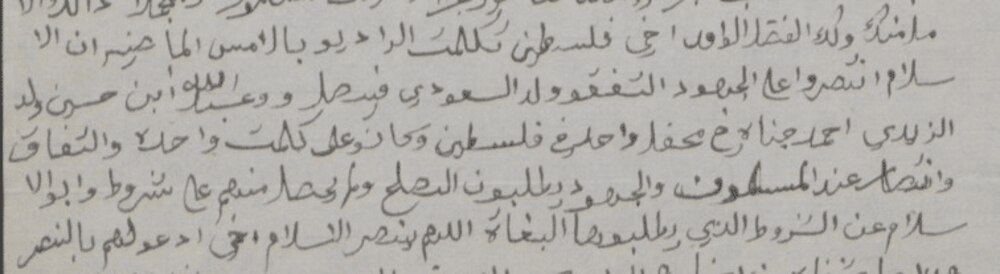 ما منك ولك الفضل الاول اخي فلسطين تكلمت الراديو بالامس الماضيه ان الا
سلام انتصروا على اليهود التفقو ولد السعودي فيصل و وعبدالله ابن حسين ولد
الزيدي احمد جناه في محفل واحد في فلسطين وكانو على كلمت واحده والتفاق
وانتصار عند المسلمون واليهود يطلبون الصلح ولم يحصل منهم على شروط وابوا الا
سلام عن الشروط الذي يطلبوها البغاة اللهم ينصر الاسلام اخي ادعو لهم بالنصر